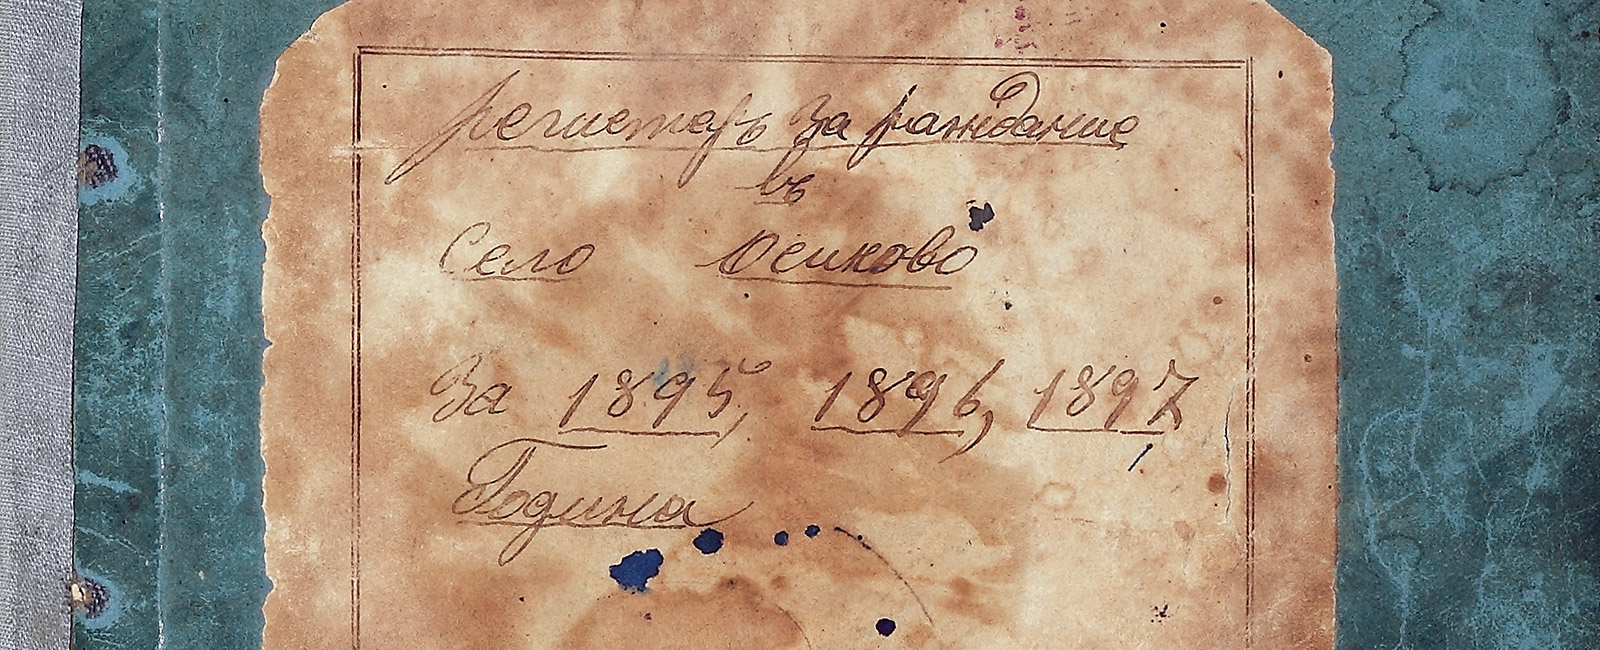 Регистеръ За раждание
въ
Село Осиково
За 1895, 1896, 1897
Година